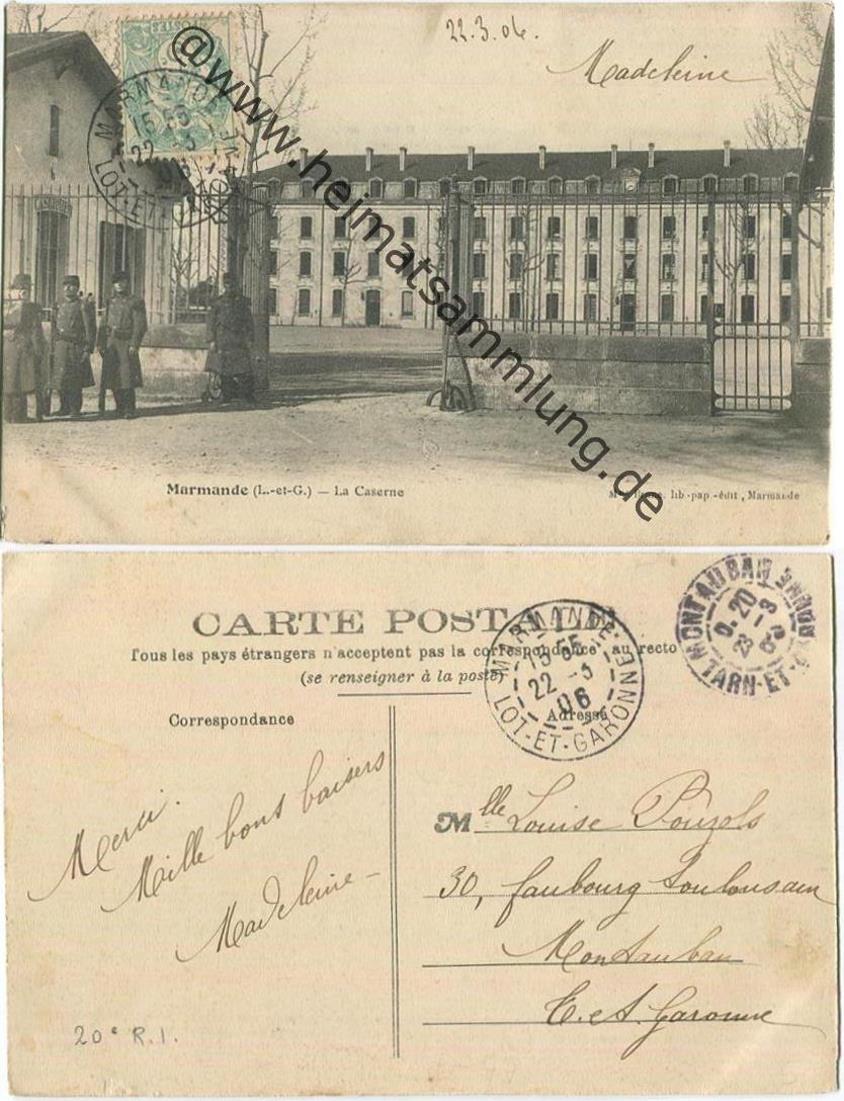 22.3.06.
Madeleine
POSTES
MARMANDE
15 55
22 -3
06
LOT-ET-GARONNE
@www.heimatsammlung.de
Marmande (L.-et-G.) — La Caserne
lib.-pap.-édit, Marmande
CARTE POSTALE
Tous les pays étrangers n'acceptent pas la correspondance au recto
(se renseigner à la poste)
MARMANDE
15 55
22 -3
06
LOT-ET-GARONNE
MONTAUBAN
9.20
23 -3
06
TARN-ET-GARONNE
Correspondance
Adresse
Merci.
Mille bons baisers
Madeleine
Mlle Louise Pouzols
30, faubourg Toulousain
Montauban
T. et G. Garonne
20e R.I.